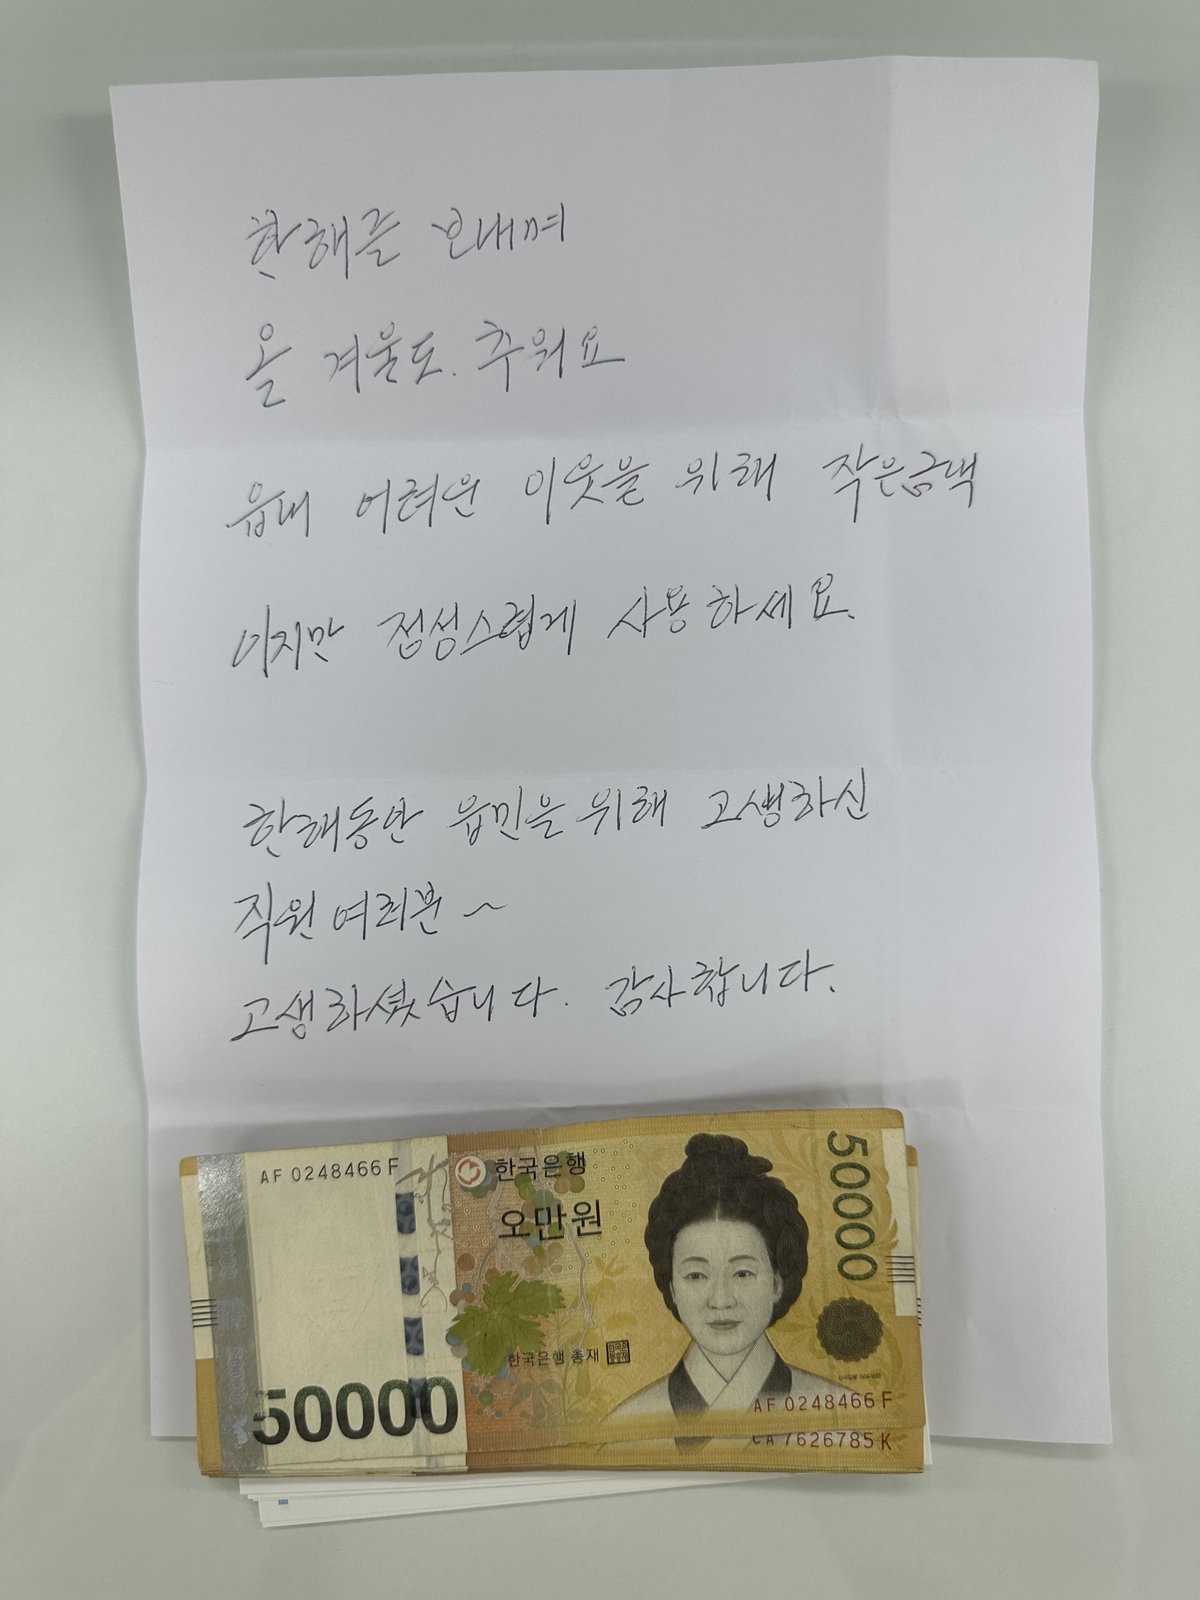 한해를 보내며
올 겨울도. 추워요
읍내 어려운 이웃을 위해 작은금액
이지만 정성스럽게 사용하세요.
한해동안 읍민을 위해 고생하신
직원 여러분~
고생하셨습니다. 감사합니다.
AF 0248466 F
한국은행
오만원
50000
한국은행 총재
50000
AF 0248466 F
CA 7626785 K